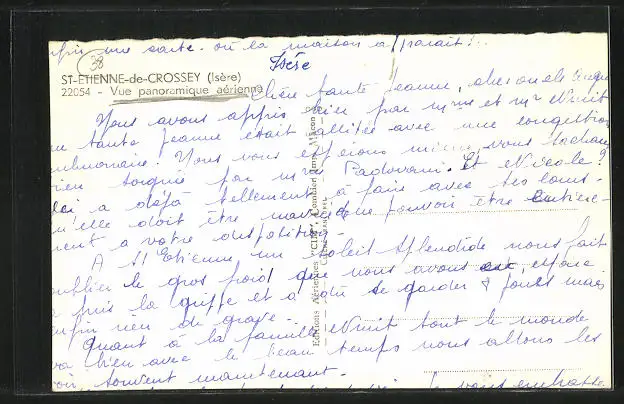 enfin une carte où la maison apparaît !..
38
Isère
ST-ETIENNE-de-CROSSEY (Isère)
22054 - Vue panoramique aérienne
Chère tante Jeanne, chers oncle
Nous avons appris hier par Mme et Mr Nuit
tante Jeanne était alitée avec une congestion
pulmonaire. Nous vous espérons mieux, vous sachant
bien soignée par Mme Padovani. Et Nicole ?
a déjà tellement à faire avec ses cours
qu'elle doit être navrée de ne pouvoir être entière-
ment à votre disposition.
A St Etienne un soleil splendide nous fait
oublier le gros froid que nous avons eu,
a pris la grippe et a dû se garder 4 jours mais
enfin rien de grave.
Quant à la famille Nuit tout le monde
va bien avec le beau temps nous allons les
voir souvent maintenant.
Je vous embrasse
Editions Aériennes "CIM", Combier Imp. Macon